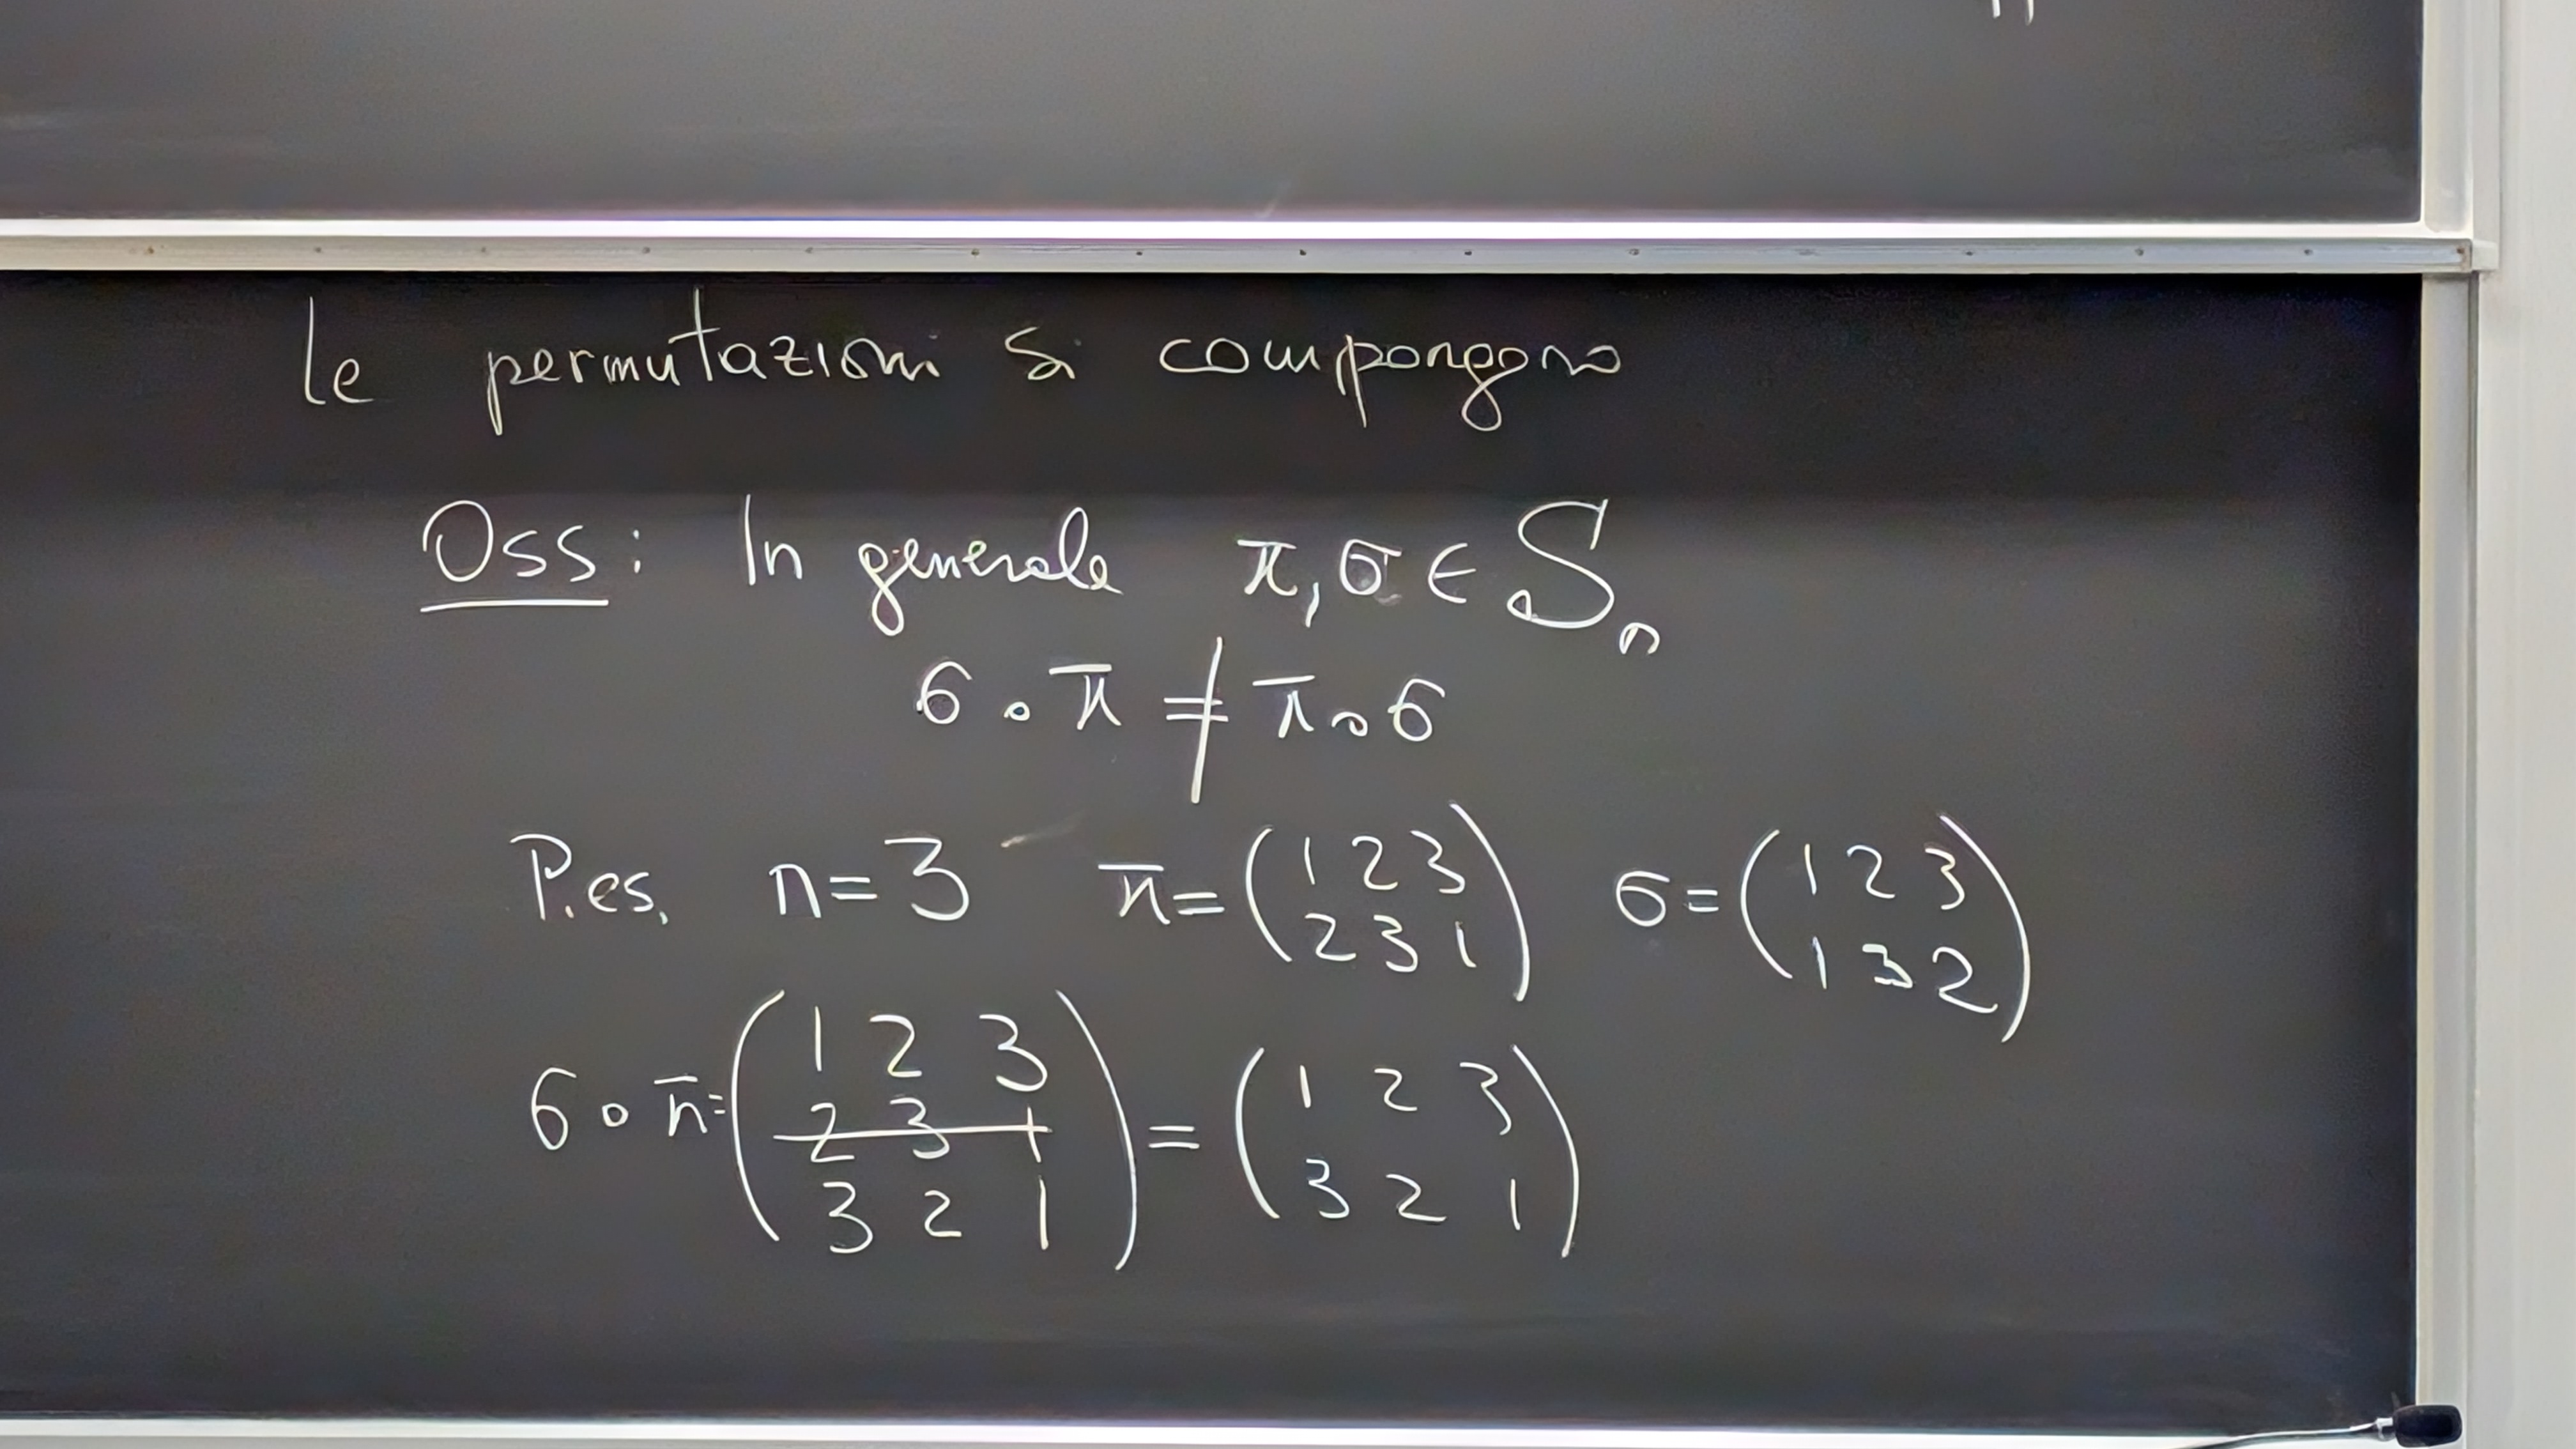 le permutazioni si compongono
Oss: In generale π, σ ∈ Sₙ
σ ∘ π ≠ π ∘ σ
P.es. n=3 π = (1 2 3 / 2 3 1) σ = (1 2 3 / 1 3 2)
σ ∘ π = (1 2 3 / 2 3 1 / 3 2 1) = (1 2 3 / 3 2 1)